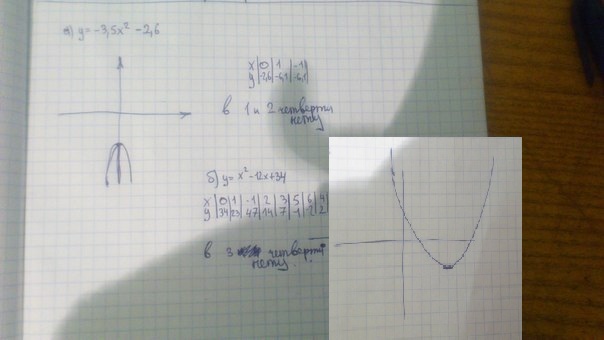 а) y = -3,5x² - 2,6
x | 0 | 1 | -1 |
y | -2,6 | -6,1 | -6,1 |
в 1 и 2 четверти
нету
б) y = x² - 12x + 34
x | 0 | 1 | -1 | 2 | 3 | 5 | 6 | 4
y | 34 | 23 | 47 | 14 | 7 | -1 | -2 | 2
в 3 четверти
нету